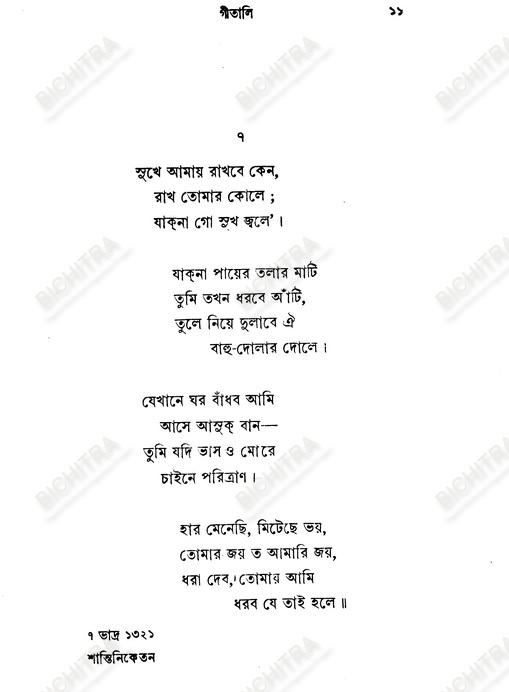 গীতালি ১১
৭
সুখে আমায় রাখবে কেন,
রাখ তোমার কোলে ;
যাক্‌না গো সুখ জ্বলে’ ।
যাক্‌না পায়ের তলার মাটি
তুমি তখন ধরবে আঁটি,
তুলে নিয়ে দুলাবে ঐ
বাহু-দোলার দোলে ।
যেখানে ঘর বাঁধব আমি
আসে আসুক্ বান—
তুমি যদি ভাস ও মোরে
চাইনে পরিত্রাণ ।
হার মেনেছি, মিটেছে ভয়,
তোমার জয় ত আমারি জয়,
ধরা দেব, তোমায় আমি
ধরব যে তাই হলে ॥
৭ ভাদ্র ১৩২১
শান্তিনিকেতন
BICHITRA
BICHITRA
BICHITRA
BICHITRA
BICHITRA
BICHITRA
BICHITRA
BICHITRA
BICHITRA
BICHITRA